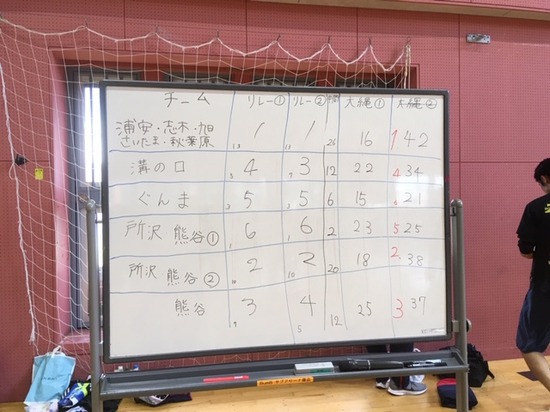 チーム リレー① リレー② 大縄① 大縄②
浦安・志木・旭
さいたま・秋葉原 1 1 26 16 1 42
溝の口 4 3 12 22 4 34
ぐんま 5 5 6 15 21
所沢 熊谷① 6 6 2 23 5 25
所沢 熊谷② 2 10 2 20 18 2 38
熊谷 3 4 5 12 25 3 37